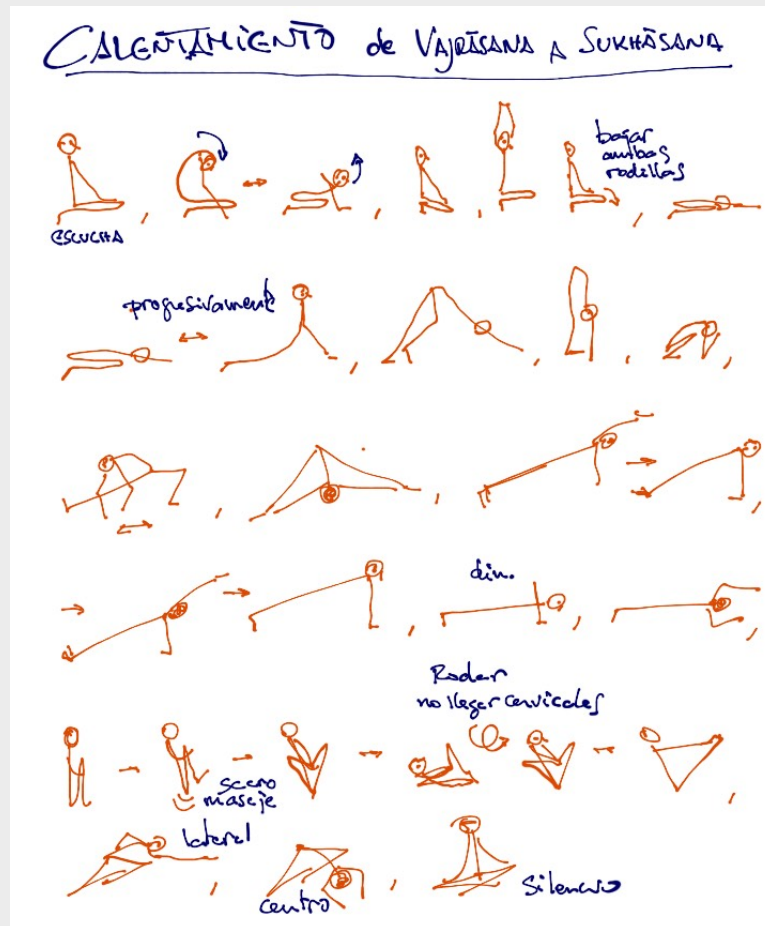 CALENTAMIENTO de VAJRĀSANA A SUKHĀSANA
bajar
ambas
rodillas
ESCUCHA
progresivament
din.
Rodar
no llegar cervicales
sacro
masaje
lateral
centro
Silencio